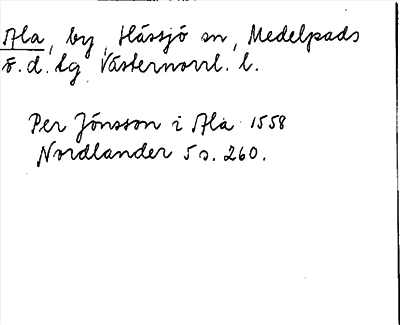 Ala, by, Hässjö sn, Medelpads
f.d. lg Västernorrl. l.
Per Jönsson i Ala 1558
Nordlander 5 s. 260.